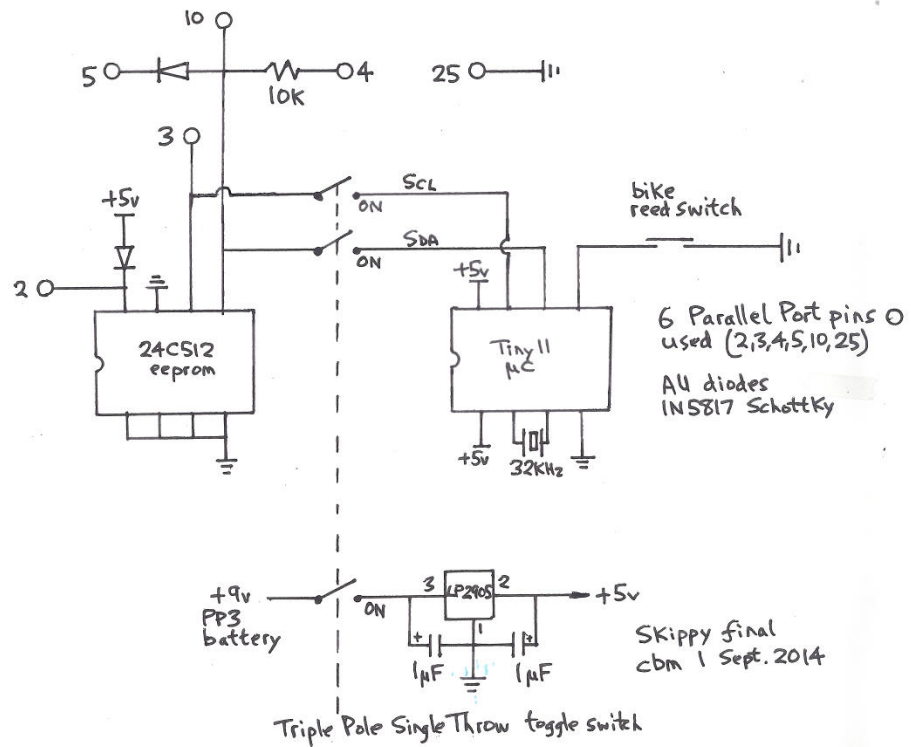 10
5
10K
4
25
3
+5v
SCL
ON
SDA
ON
bike
reed switch
2
+5v
24C512
eeprom
Tiny11
µC
6 Parallel Port pins O
used (2,3,4,5,10,25)
All diodes
1N5817 Schottky
+5v
32KHz
+9v
PP3
battery
ON
3
LP2905
2
1
+5v
+
1µF
+
1µF
Skippy final
cbm 1 Sept. 2014
Triple Pole Single Throw toggle switch